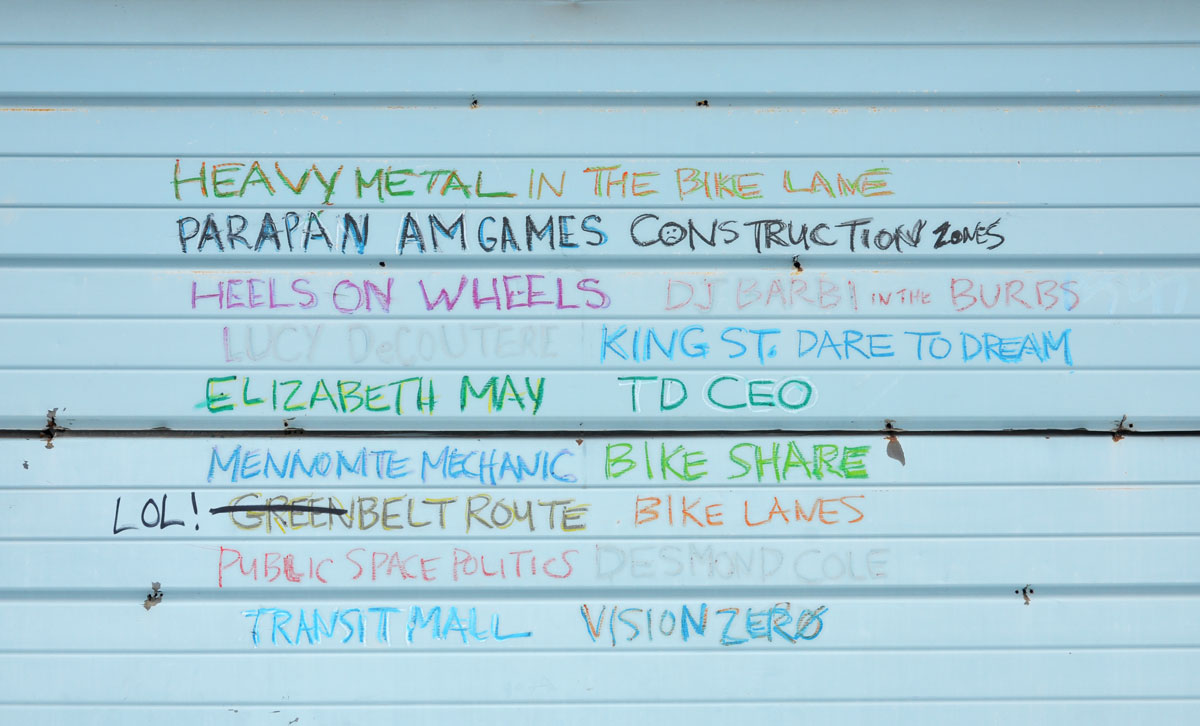 HEAVY METAL IN THE BIKE LANE
PARAPAN AM GAMES CONSTRUCTION ZONES
HEELS ON WHEELS DJ BARBI IN THE BURBS
LUCY DeCOUTERE KING ST. DARE TO DREAM
ELIZABETH MAY TD CEO
MENNONITE MECHANIC BIKE SHARE
LOL! GREENBELT ROUTE BIKE LANES
PUBLIC SPACE POLITICS DESMOND COLE
TRANSIT MALL VISION ZERO